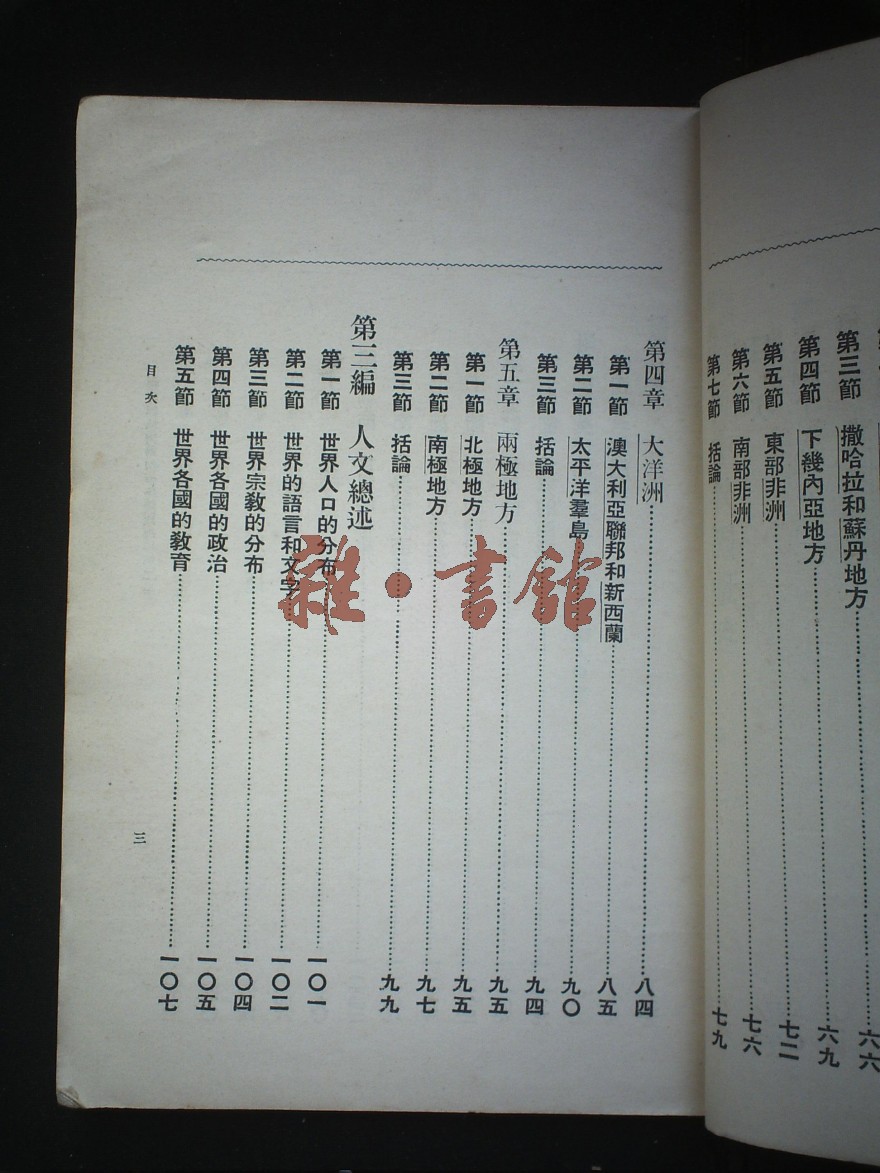 第三節 撒哈拉和蘇丹地方 六六
第四節 下幾內亞地方 六九
第五節 東部非洲 七二
第六節 南部非洲 七六
第七節 括論 七九
第四章 大洋洲 八四
第一節 澳大利亞聯邦和新西蘭 八五
第二節 太平洋羣島 九〇
第三節 括論 九四
第五章 兩極地方 九五
第一節 北極地方 九五
第二節 南極地方 九七
第三節 括論 九九
第三編 人文總述
第一節 世界人口的分布 一〇一
第二節 世界的語言和文字 一〇二
第三節 世界宗教的分布 一〇四
第四節 世界各國的政治 一〇五
第五節 世界各國的教育 一〇七
目次
三
雜·書館